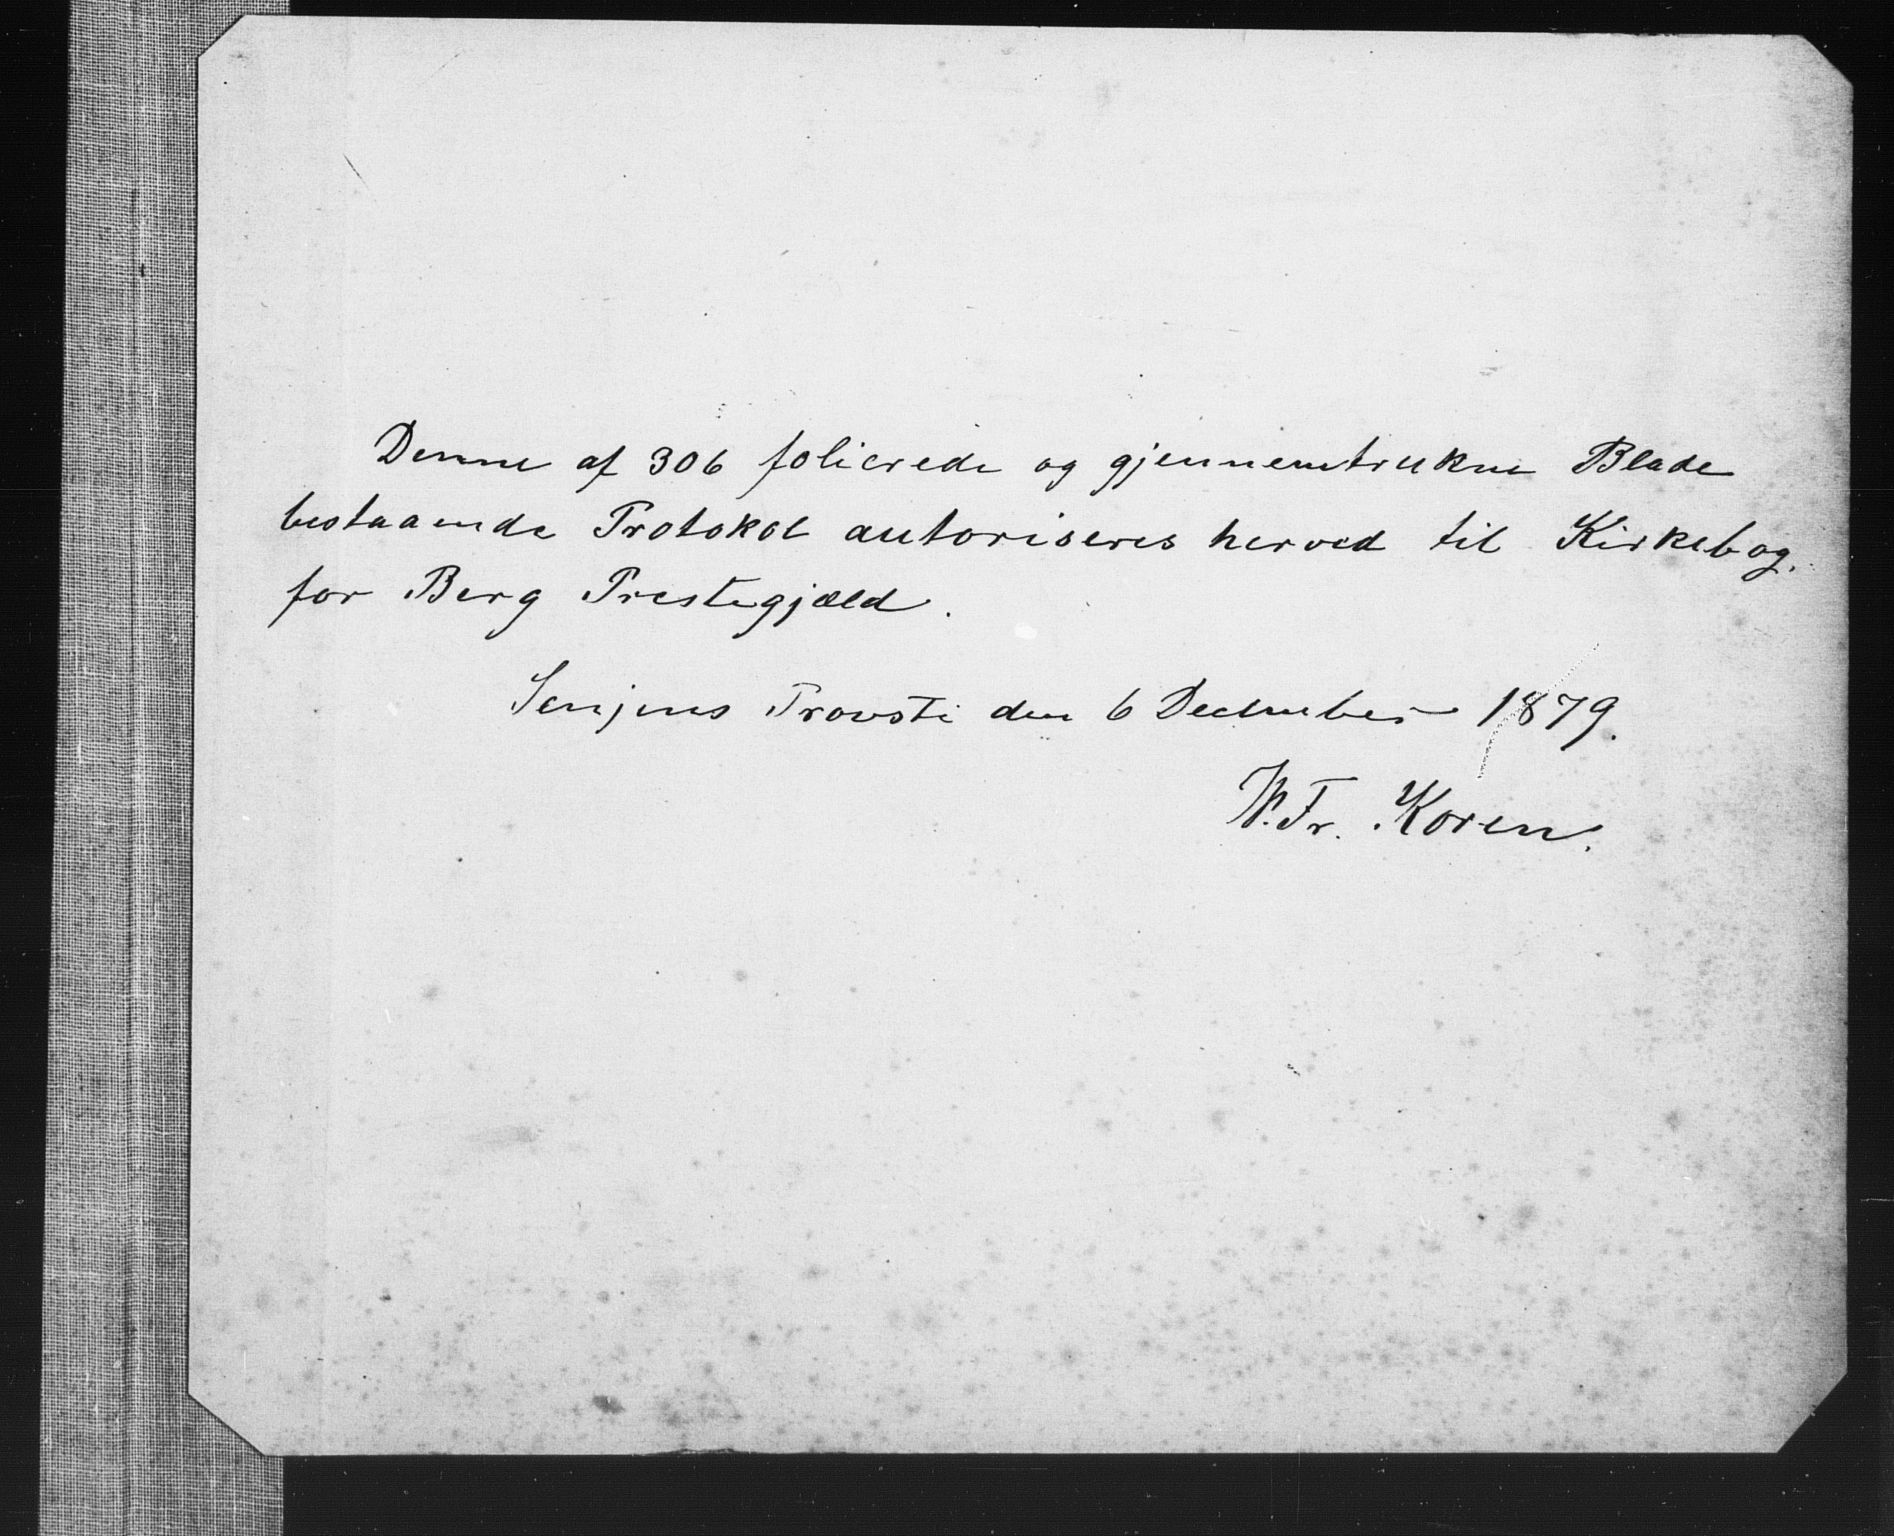 Denne af 306 folierede og gjennemtrukne Blade
bestaaende Protokol autoriseres herved til Kirkebog.
for Berg Prestegjæld.
Senjens Provsti den 6 December 1879.
W. Fr. Koren.